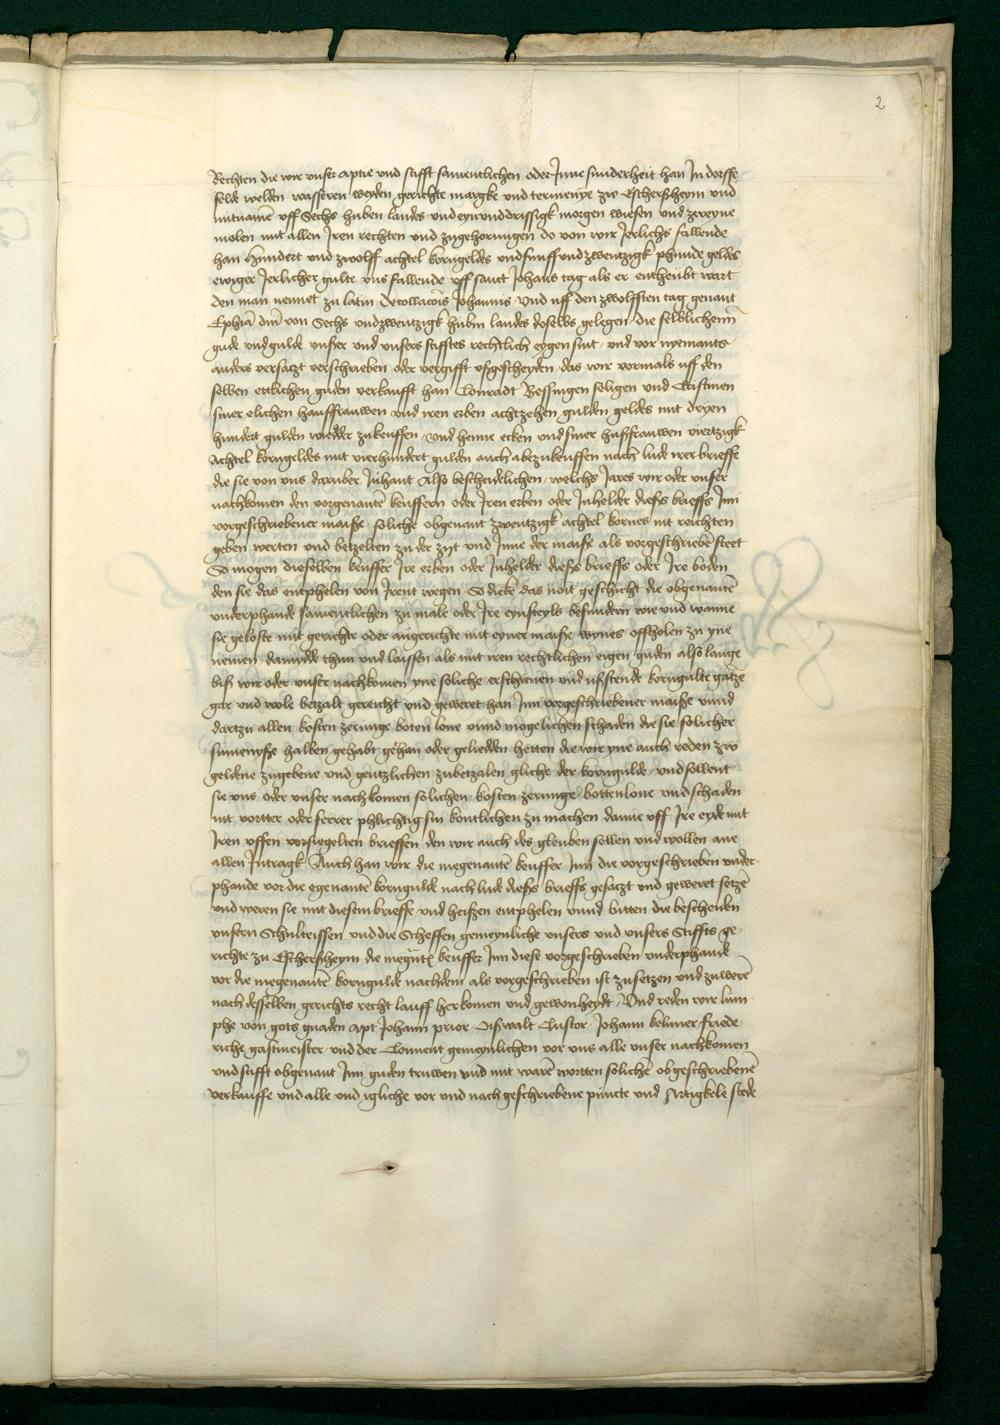 2
Rechten die wir unser aptie vnd stifft samentlichen oder Inne sunderheit han In dorffe
felde welden wasseren weyden gerichte margke vnd termenye zw Eschersheym vnd
mitname vff Sechs huben landes vnd eynvnddrissigk morgen wiesen vnd zweyne
molen mit allen Iren rechten vnd zugehorungen do von wir Jerlichs fallende
han Hundert vnd zwolff achtel korngeldes vndfunffvndzwentzigk phunde geldes
ewiger Jerlicher gulte vns fallende vff sant Johans tag als er entheubt wart
den man nennet zu latin Decollacois Johannis vnd uff den zwolfften tag genant
Ephia dni von Sechs vndzwentzigk hubin landes doselbs gelegen die selblichenn
gude vndgulde unser vnd unsers stifftes rechtlich eygen sint vnd vor nyemants
anders versatzt verschrieben oder vergifft vßgescheyden das wir vormals uff den
selben ettlichen guden verkaufft han Conradt Bessingen seligen vnd Cristinen
siner elichen hausffrauwen vnd iren erben achtzehen gulden geldes mit dryen
hundert gulden wiedder zukeuffen vnd henne ecken vndsiner hußfrauwen viertzigk
Achtel korngeldes mit vierhundert gulden auch abezukeuffen nach lude irer brieffe
die sie von vns daruber Inhant Also bescheidelichen welichs Jares wir oder unser
nachkomen den vorgenante keuffern oder Iren erben oder Inhelder dieses brieffs Inn
vorgeschriebener maiße soliche obgenant zwentzigk achtel kornes nit reichten
geben werten vnd betzelten zu der zyt vnd Inne der maiße als vorgeschriebe steet
So mogen dieselben keuffer Ire erben oder Inhelder dieses brieffs oder Ire boden
den sie das entphelen von Irent wegen So dicke das noit geschicht die obgenante
vnderphande samentlichen zu male oder Ire eynsteyls besundern wie vnd wanne
sie geloste mit gerichte oder angerichte mit eyner maiße wynes offholen zu yne
nemen damydde thun vnd laissen als mit iren rechtlichen eigen guden also lange
biß wir oder unser nachkomen yne soliche erschienen vnd ußstende korngulte gatze
gar vnd wole betzalt gereicht vnd geweret han Inn vorgeschriebener maiße vnnd
dartzu allen kosten zerunge boten lone vnnd mogelichen schaden die sie solicher
sumenyße halben gehabt gehan oder geliedden hetten die wir yne auch reden zw
geldene zugebene vnd gentzlichen zubetzalen gliche der korngulde vnd sollent
sie vns oder unser nachkomen solichen kosten zerunge bottenlone vnd schaden
nit vortter oder ferrer phlichtig sin kontlichen zu machen danne vff Ire eyde mit
Iren offen versiegelten brieffen den wir auch des gleuben sollen vnd wollen ane
allen Intragk Auch han wir die megenante keuffer Inn die vorgeschrieben vnder-
phande vor die egenante korngulde nach lude dieses brieffs gesatzt vnd geweret setze
vnd weren sie mit diesem brieffe vnd heißen entphelen vnnd bitten die bescheiden
unsern Schulteissen vnd die Scheffen gemeynliche unsers vnd unsers Stiffts ge-
richte zu Eschersheym die megnte keuffer Inn diese vorgeschrieben vnderphande
vor die megenante korngulde nachdem als vorgeschrieben ist zu setzen vnd zuwere
nach desselben gerichts recht lauff herkomen vnd gewonheydt Vnd reden wir
phe von gots gnaden apt Johann prior Oißwalt Custor Johann friede-
riche gastmeister vnd der Conuent gemeynlichen vor vns alle unser nachkomen
vnd stifft obgenant Inn guden truwen vnd mit ware wortten soliche obgeschriebene
verkauffe vnd alle vnd igliche vor vnd nach geschriebene puncte vnd Artigkele stede